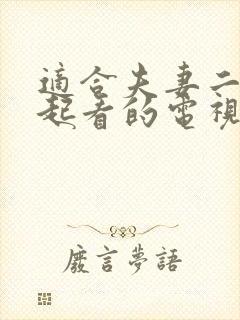 適合夫妻二
起看的電視
廢言夢語